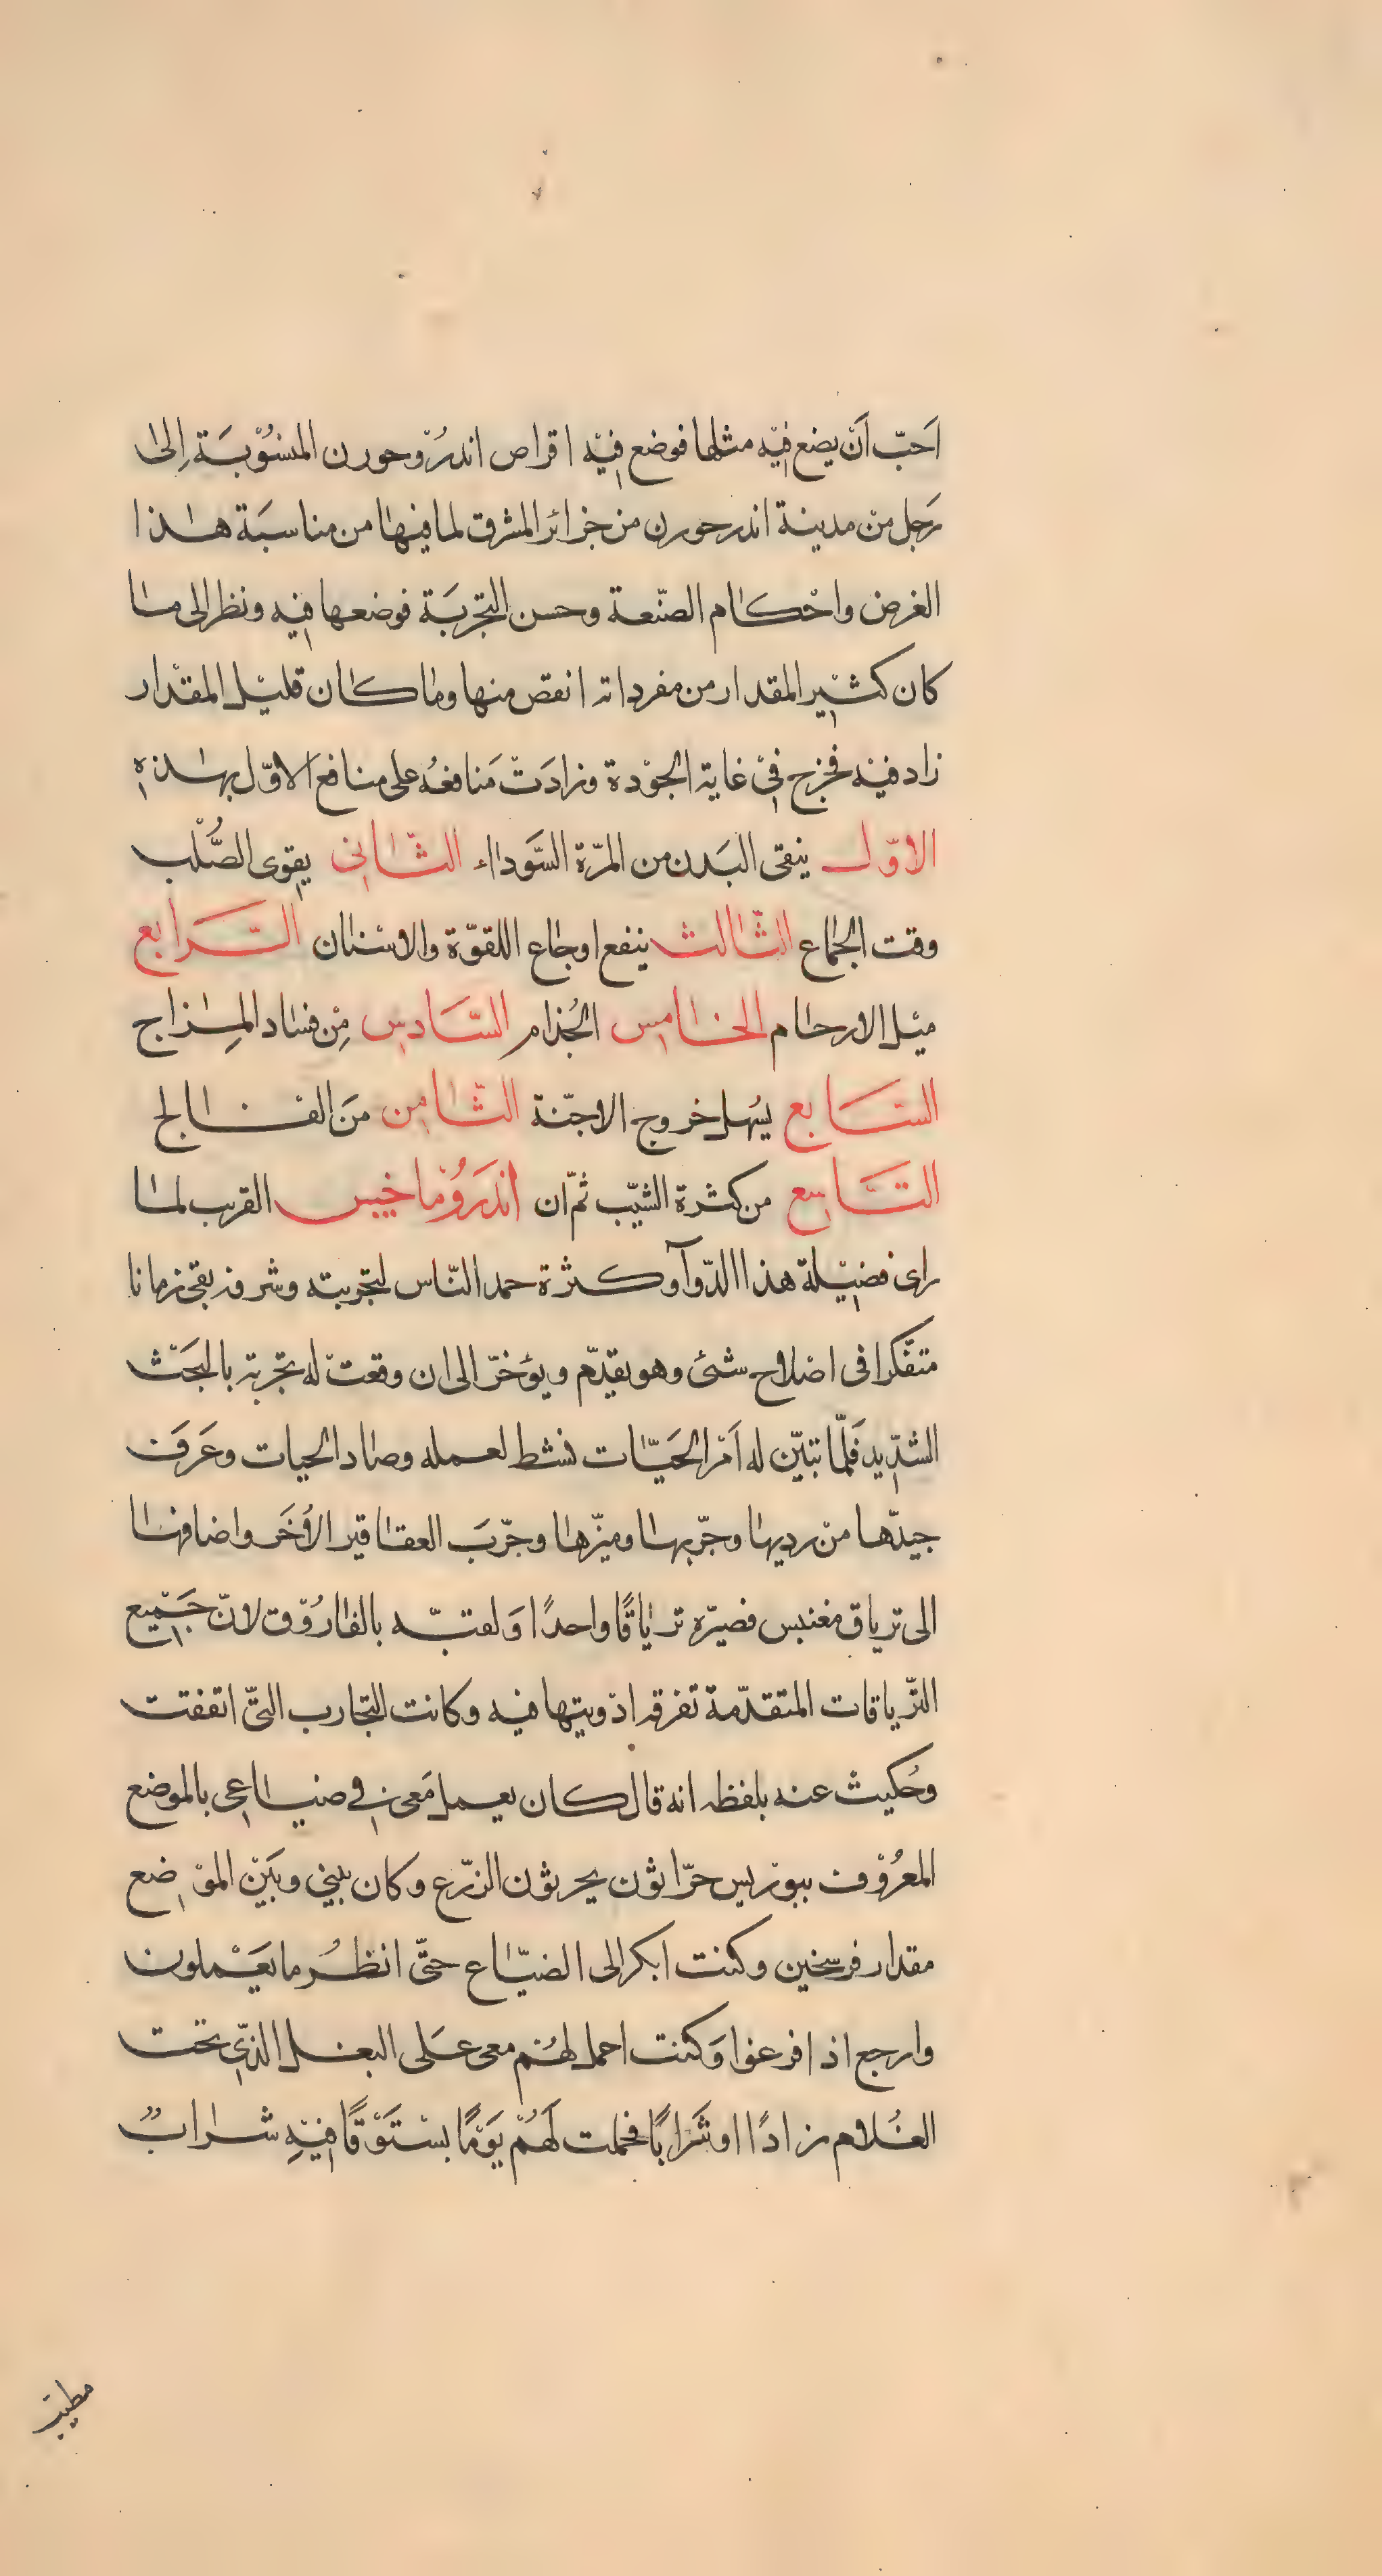 اَحبّ اَنْ يضع فِيْه مثلها فوضع فِيْه اقراص اندرُوْحورن المنسُوْبَة اِلىٰ
رَجل منْ مدينة اندرحورن من جزائر المشرق لما فيهٰا من مناسبَة هٰذا
الغرض واحْكٰام الصّنعة وحسن التجربَة فوضعها فِيه ونظر الى مٰا
كان كثِيْر المقدار من مفرداته انقص منها ومٰا كٰان قليْل المقْدار
زاد فيْه فخرج فِىْ غاية الجوْدة وزادَتْ مَنافعُه على منافع الاوّل بهٰذهِ
الاوّل ينقى البَدن من المرّة السَّوداء الثّانى يقوى الصُّلْب
وقت الجمٰاع الثّالث ينفع اوجٰاع اللقوّة والاسْنٰان الرَّابع
ميْل الارحٰام الخٰامس الجُذام السَّادس مِنْ فسٰاد المِزاج
السَّابع يسُهل خروج الاجنّة الثّامن مَن الفٰالج
التَّاسع من كثرة الشيّب ثمّ ان اَندَرَوُمٰاخيس القريب لمٰا
راى فضِيْلة هذا الدّوآ وكثرة حمد النّاس لتجربته وشرفه بقى زمانا
متفّكرا فى اصْلاح شئ وهو يقدّم ويؤخّر الى ان وقعتْ له تجربة بالبَحْث
الشدِّيد فَلمّا تبيّن له اَمْر الحَيّٰات نشط لعمله وصٰاد الحيات وعَرفَ
جيدّها منْ رديهٰا وجرّبهٰا وميزّهٰا وجرّبَ العقٰاقير الاُخَر واضافهٰا
الى ترياق مغنيس فصيرّه ترْيٰاقًا واحدًا وَلقبّه بالفٰارُوْق لانّ جَمِيْع
الترّياقات المتقدّمة تفرقه ادْويتها فيه وكانت التجارب التىّ اتفقت
وحُكيت عنه بلفظه انه قال كان يعمل مَعى فِي ضيٰاعى بالموضع
المعرُوْف ببوْريس حرّاثوْن يحرثوْن الزرّع وكان بينِي وبَيْن الموْضع
مقدار فرسخين وكنت ابكر الى الضيّٰاع حتّى انظُر ما يَعْملون
وارجع اذا فرغوا وَكنت احمل لهُم معى عَلى البغل الذّى تحت
الغُلام زادًا او شَرابًا فحملت لَهُمْ يَوْمًا بسْتَوْقًا فيْهِ شرابٌ
مطين